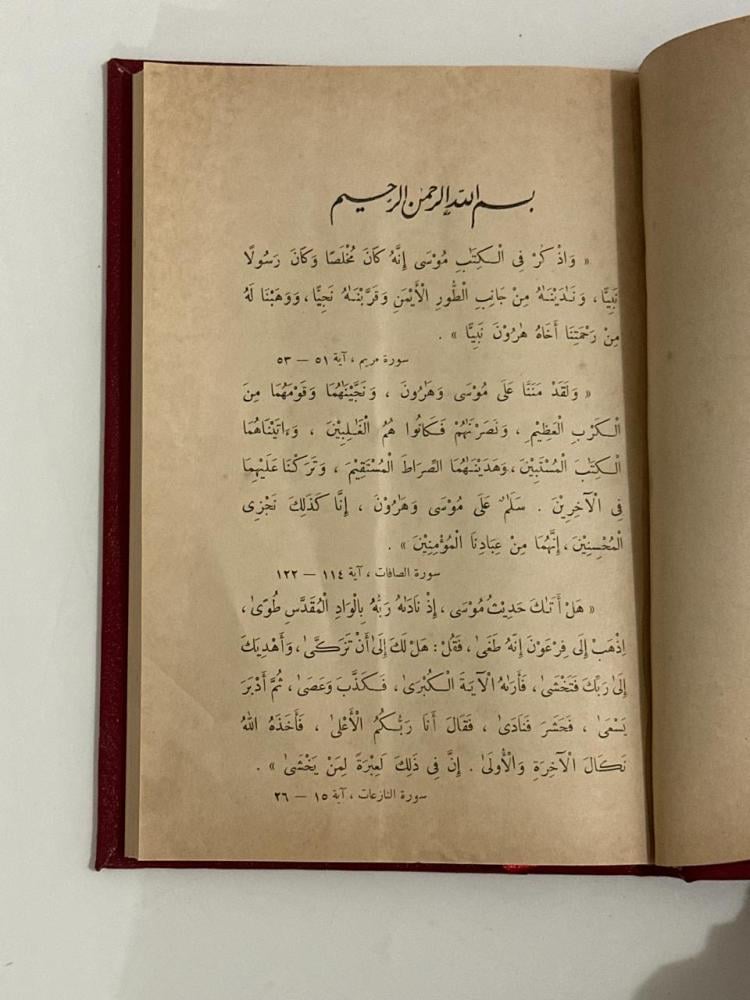 بسم الله الرحمن الرحيم
« وَاذْ كُرْ فِى الْـكِتَابِ مُوْسَى إِنَّهُ كَانَ مُخْلَصًا وَكَانَ رَسُولًا
نَبِيًّا ، وَنَادَيْنَـاهُ مِنْ جَانِبِ الطُّورِ الْأَيْمَنِ وَقَرَّبْنَـاهُ نَجِيًّا، وَوَهَبْنَا لَهُ
مِنْ رَحْمَتِنَا أَخَاهُ هٰرُوْنَ نَبِيًّا » .
سورة مريم ، آية ٥١ — ٥٣
« وَلَقَدْ مَنَنَّا عَلَى مُوْسَى وَهَارُونَ ، وَنَجَّيْنَاهُمَا وَقَوْمَهُمَا مِنَ
الْـكَرْبِ الْعَظِيْمِ ، وَنَصَرْنَاهُمْ فَـكَانُوا هُمُ الْغَـالِبِيْنَ ، وَءَاتَيْنَاهُمَا
الْـكِتَابَ الْمُسْتَبِيْنَ، وَهَدَيْنَـاهُمَا الصِّرَاطَ الْمُسْتَقِيْمَ ، وَتَرَكْنَا عَلَيْهِمَا
فِى الْآخِرِيْنَ . سَلَامٌ عَلَى مُوْسَى وَهَارُوْنَ ، إِنَّا كَذٰلِكَ نَجْزِى
الْمُحْسِنِيْنَ ، إِنَّهُمَا مِنْ عِبَادِنَا الْمُؤْمِنِيْنَ » .
سورة الصافات ، آية ١١٤ — ١٢٢
« هَلْ أَتَـاكَ حَدِيْثُ مُوْسَى ، إِذْ نَادَاهُ رَبُّهُ بِالْوَادِ الْمُقَدَّسِ طُوًى ،
اِذْهَبْ إِلَى فِرْعَوْنَ إِنَّهُ طَغَى ، فَقُلْ : هَلْ لَكَ إِلَى أَنْ تَزَكَّى ، وَأَهْدِيَكَ
إِلَى رَبِّكَ فَتَخْشَى ، فَأَرَاهُ الْآيَةَ الْـكُبْرَى ، فَـكَذَّبَ وَعَصَى ، ثُمَّ أَدْبَرَ
يَسْعَى ، فَحَشَرَ فَنَادَى ، فَقَالَ أَنَا رَبُّـكُمُ الْأَعْلَى ، فَأَخَذَهُ اللهُ
نَـكَالَ الْآخِرَةِ وَالْأُولَى . إِنَّ فِى ذٰلِكَ لَعِبْرَةً لِمَنْ يَخْشَى » .
سورة النازعات ، آية ١٥ — ٢٦